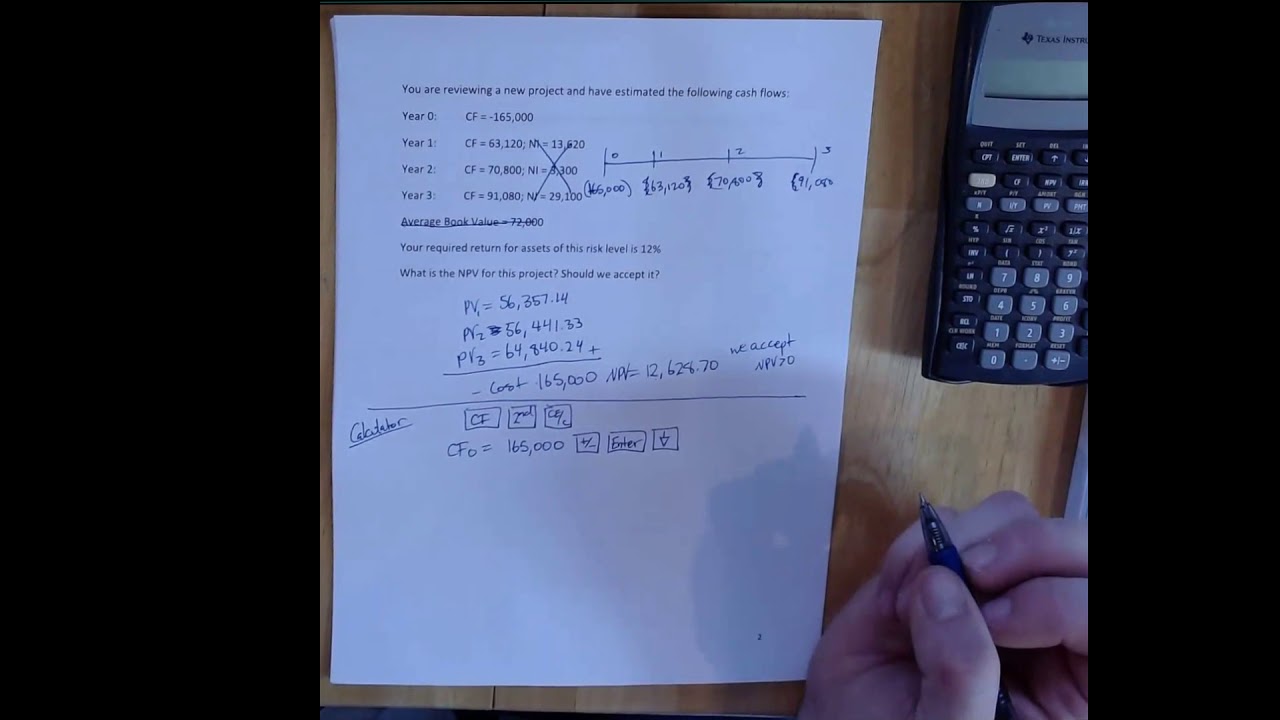 You are reviewing a new project and have estimated the following cash flows:
Year 0: CF = -165,000
Year 1: CF = 63,120; NI = 13,620
Year 2: CF = 70,800; NI = 3,300
Year 3: CF = 91,080; NI = 29,100
0 1 2 3
(165,000) {63,120} {70,800} {91,080
Average Book Value = 72,000
Your required return for assets of this risk level is 12%
What is the NPV for this project? Should we accept it?
PV1 = 56,357.14
PV2 = 56,441.33
PV3 = 64,840.24 +
- Cost 165,000 NPV = 12,628.70
we accept
NPV>0
Calculator
CF 2nd CE/C
CF0 = 165,000 +/- Enter ↓
2
TEXAS INSTRU
QUIT SET DEL
CPT ENTER ↑
2ND CF NPV IRR
xP/Y P/Y AMORT BGN
N I/Y PV PMT
% √x x² 1/x
HYP SIN COS TAN
INV ( ) yˣ
DATA STAT BOND
LN 7 8 9
ROUND DEPR Δ% BRKEVN
STO 4 5 6
DATE ICONV PROFIT
RCL 1 2 3
CLR WORK MEM FORMAT RESET
CE|C 0 . +|-